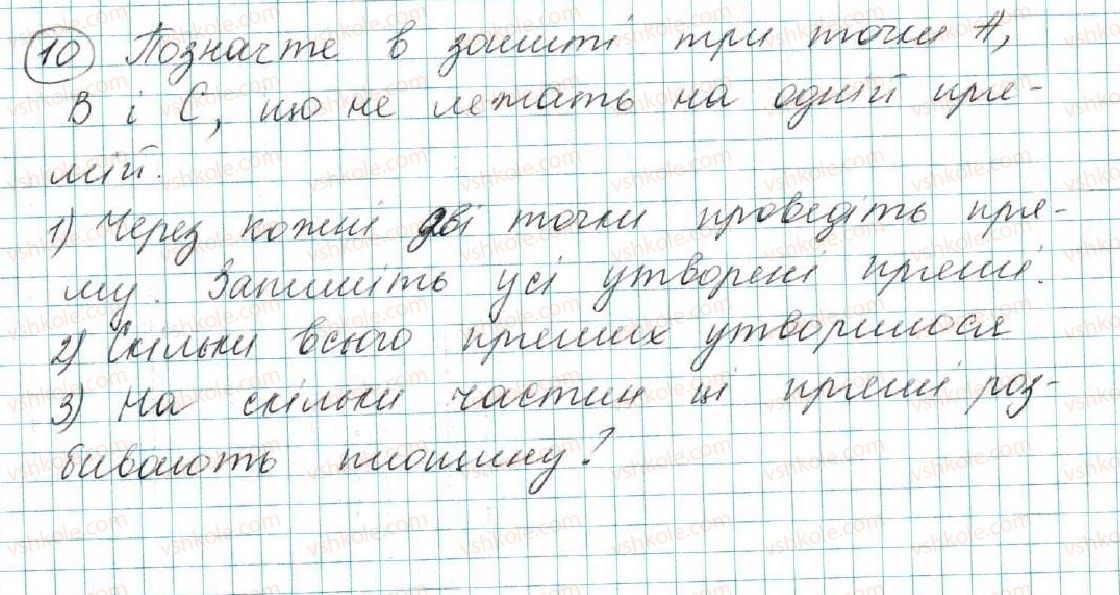 10 Позначте в зошиті три точки А,
В і С, що не лежать на одній пря-
мій.
1) Через кожні дві точки проведіть пря-
му. Запишіть усі утворені прямі.
2) Скільки всього прямих утворилося
3) На скільки частин ці прямі роз-
бивають площину?